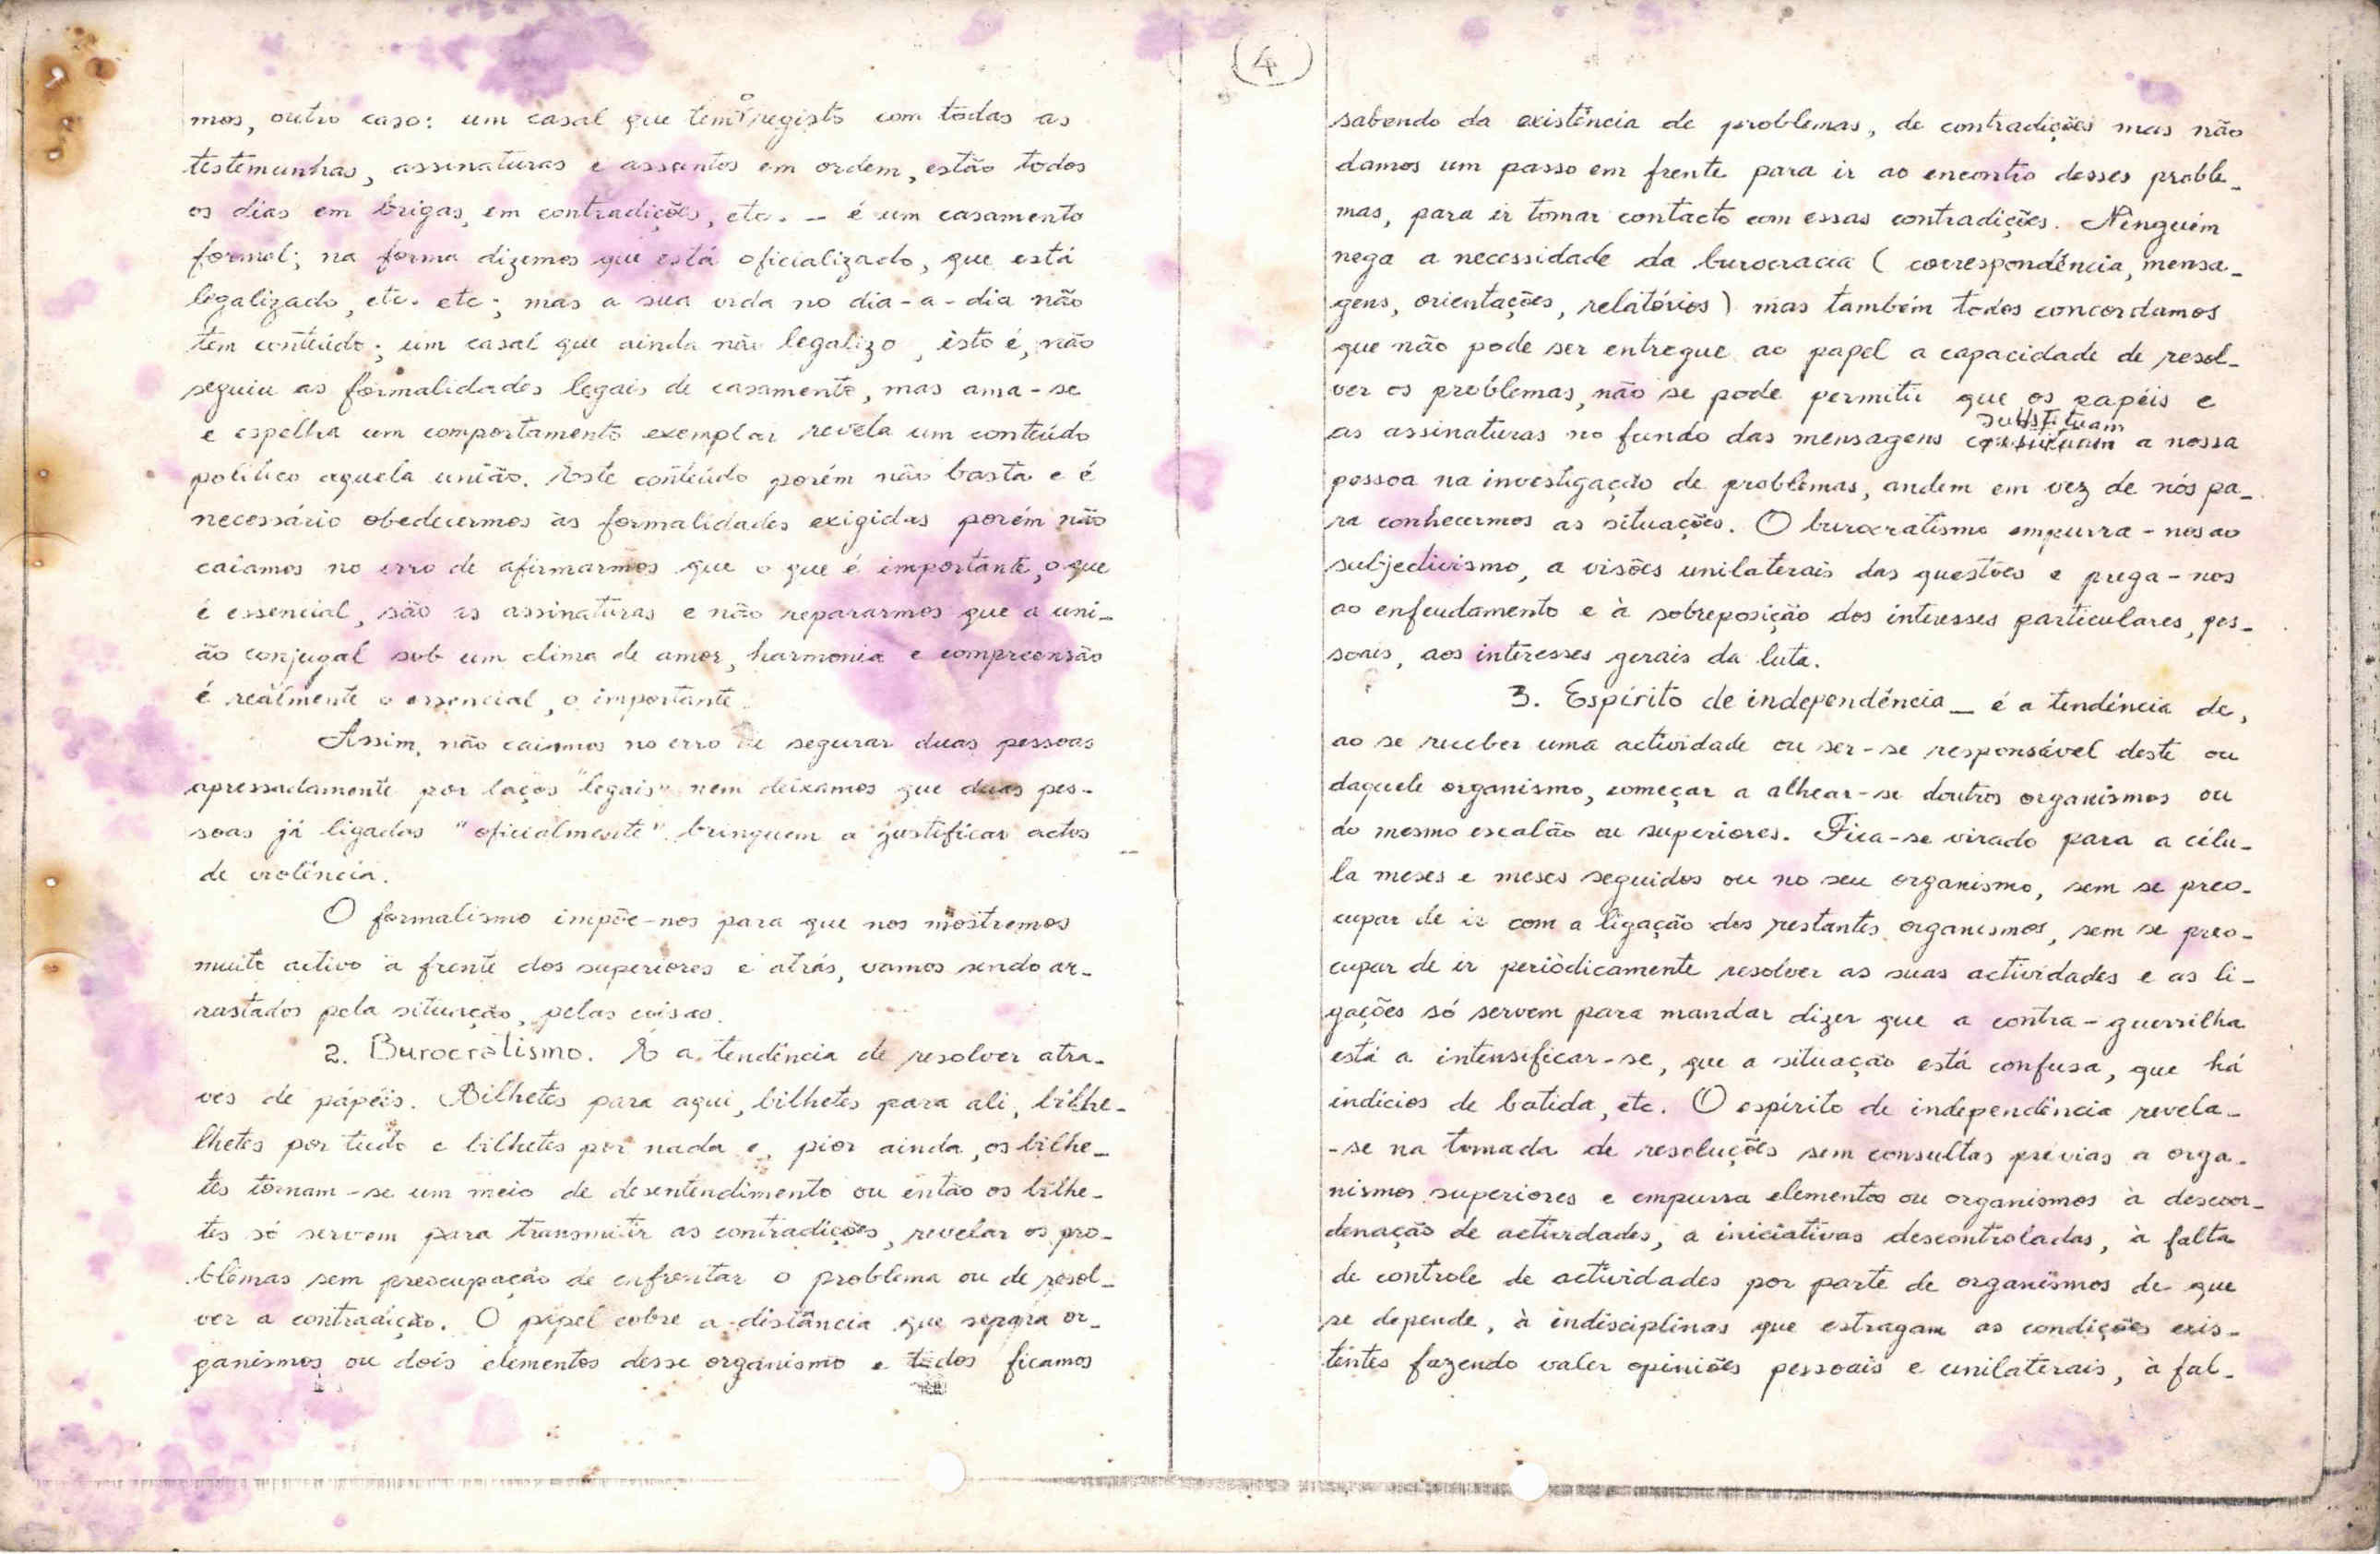 4
mos, outro caso: um casal que tem o registo com todas as
testemunhas, assinaturas e assuntos em ordem, estão todos
os dias em brigas, em contradições, etc. — é um casamento
formal; na forma dizemos que está oficializado, que está
legalizado, etc. etc; mas a sua vida no dia-a-dia não
tem conteúdo; um casal que ainda não legalizo, isto é, não
seguiu as formalidades legais de casamento, mas ama-se
e espelha um comportamento exemplar revela um conteúdo
político aquela união. Este conteúdo porém não basta e é
necessário obedecermos às formalidades exigidas porém não
caiamos no erro de afirmarmos que o que é importante, o que
é essencial, são as assinaturas e não repararmos que a uni-
ão conjugal sob um clima de amor, harmonia e compreensão
é realmente o essencial, o importante.
Assim, não caiamos no erro de segurar duas pessoas
apressadamente por laços "legais" nem deixamos que duas pes-
soas já ligadas "oficialmente" brinquem a justificar actos
de violência.
O formalismo impõe-nos para que nos mostremos
muito activo à frente dos superiores e atrás, vamos sendo ar-
rastados pela situação, pelas coisas.
2. Burocratismo. É a tendência de resolver atra-
ves de papéis. Bilhetes para aqui, bilhetes para ali, bilhe-
lhetes por tudo e bilhetes por nada e, pior ainda, os bilhe-
tes tornam-se um meio de desentendimento ou então os bilhe-
tes só servem para transmitir as contradições, revelar os pro-
blemas sem preocupação de enfrentar o problema ou de resol-
ver a contradição. O papel cobre a distância que separa or-
ganismos ou dois elementos desse organismo e todos ficamos
sabendo da existência de problemas, de contradições mas não
damos um passo em frente para ir ao encontro desses proble-
mas, para ir tomar contacto com essas contradições. Ninguém
nega a necessidade da burocracia (correspondência, mensa-
gens, orientações, relatórios) mas também todos concordamos
que não pode ser entregue ao papel a capacidade de resol-
ver os problemas, não se pode permitir que os papéis e
as assinaturas no fundo das mensagens substituam a nossa
pessoa na investigação de problemas, andem em vez de nós pa-
ra conhecermos as situações. O burocratismo empurra-nos ao
subjectivismo, a visões unilaterais das questões e prega-nos
ao enfeudamento e à sobreposição dos interesses particulares, pes-
soais, aos interesses gerais da luta.
3. Espírito de independência — é a tendência de,
ao se receber uma actividade ou ser-se responsável deste ou
daquele organismo, começar a alhear-se doutros organismos ou
do mesmo escalão ou superiores. Fica-se virado para a célu-
la meses e meses seguidos ou no seu organismo, sem se preo-
cupar de ir com a ligação dos restantes organismos, sem se preo-
cupar de ir periòdicamente resolver as suas actividades e as li-
gações só servem para mandar dizer que a contra-guerrilha
está a intensificar-se, que a situação está confusa, que há
indícios de batida, etc. O espírito de independência revela-
-se na tomada de resoluções sem consultas prévias a orga-
nismos superiores e empurra elementos ou organismos à descoor-
denação de actividades, a iniciativas descontroladas, à falta
de controle de actividades por parte de organismos de que
se depende, à indisciplinas que estragam as condições exis-
tentes fazendo valer opiniões pessoais e unilaterais, à fal-